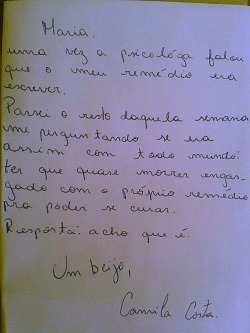 Maria,
uma vez a psicológa falou
que o meu remédio era
escrever.
Passei o resto daquela semana
me perguntando se era
assim com todo mundo:
ter que quase morrer engas-
gado com o próprio remédio
pra poder se curar.
Resposta: acho que é.
Um beijo,
Camila Costa.